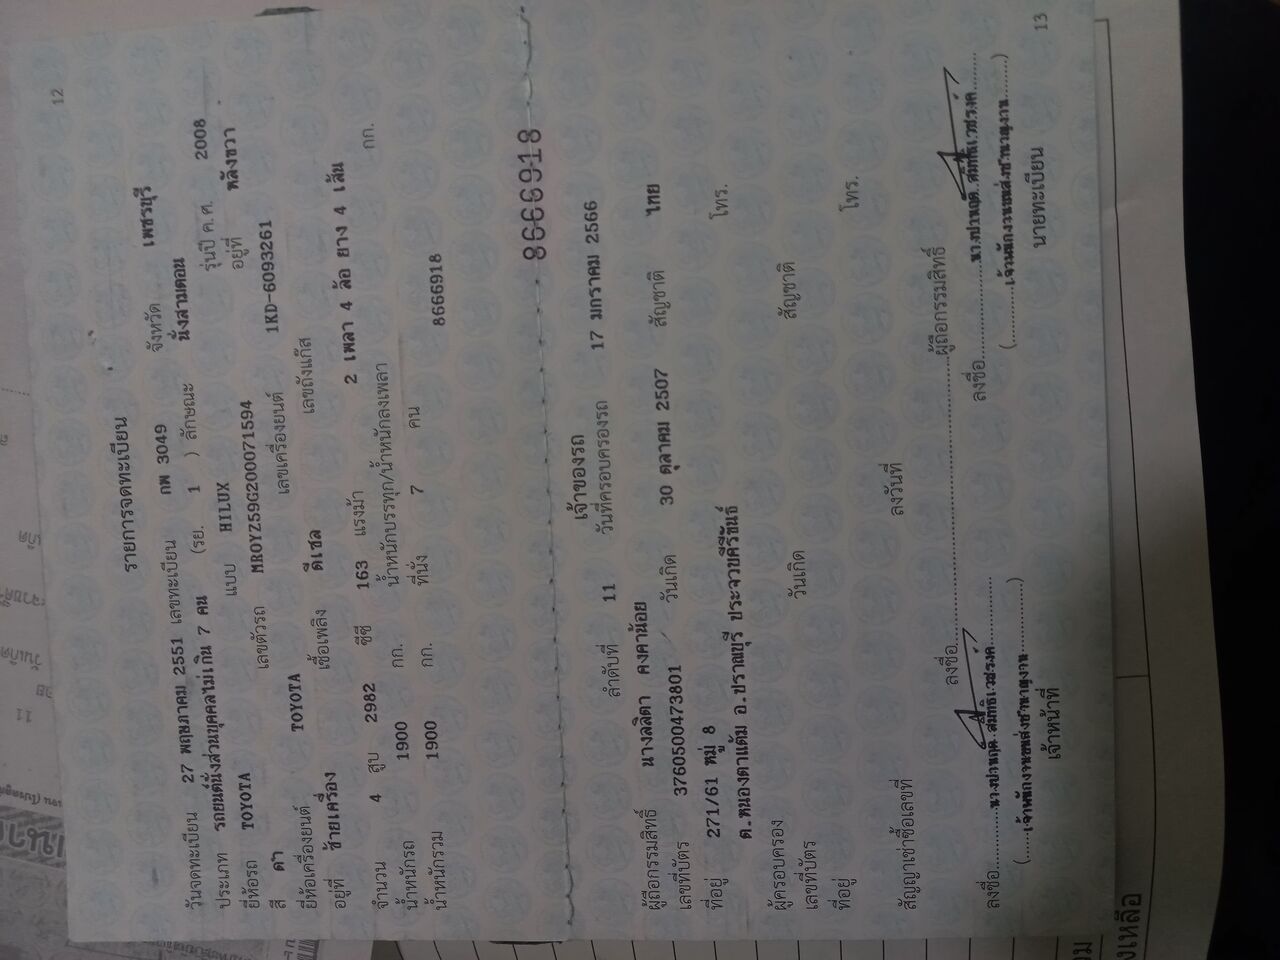 12
รายการจดทะเบียน
วันจดทะเบียน 27 พฤษภาคม 2551 เลขทะเบียน กพ 3049 จังหวัด เพชรบุรี
ประเภท รถยนต์นั่งส่วนบุคคลไม่เกิน 7 คน (รย. 1 ) ลักษณะ นั่งสามตอน
ยี่ห้อรถ TOYOTA แบบ HILUX รุ่นปี ค.ศ. 2008
สี ดำ เลขตัวรถ MROYZ59G200071594 อยู่ที่ พลังขวา
ยี่ห้อเครื่องยนต์ TOYOTA เลขเครื่องยนต์ 1KD-6093261
อยู่ที่ ซ้ายเครื่อง เชื้อเพลิง ดีเซล เลขถังแก๊ส
จำนวน 4 สูบ 2982 ซีซี 163 แรงม้า 2 เพลา 4 ล้อ ยาง 4 เส้น
น้ำหนักรถ 1900 กก. น้ำหนักบรรทุก/น้ำหนักลงเพลา กก.
น้ำหนักรวม 1900 กก. ที่นั่ง 7 คน 8666918
8666918
เจ้าของรถ
ลำดับที่ 11 วันที่ครอบครองรถ 17 มกราคม 2566
ผู้ถือกรรมสิทธิ์ นางลลิตา คงคาน้อย
เลขที่บัตร 3760500473801 วันเกิด 30 ตุลาคม 2507 สัญชาติ ไทย
ที่อยู่ 271/61 หมู่ 8 โทร.
ต.หนองตาแต้ม อ.ปราณบุรี ประจวบคีรีขันธ์
ผู้ครอบครอง
เลขที่บัตร วันเกิด สัญชาติ
ที่อยู่ โทร.
สัญญาเช่าซื้อเลขที่ ลงวันที่
ลงชื่อ ผู้ถือกรรมสิทธิ์
ลงชื่อ ลงชื่อ
เจ้าหน้าที่ นายทะเบียน
13